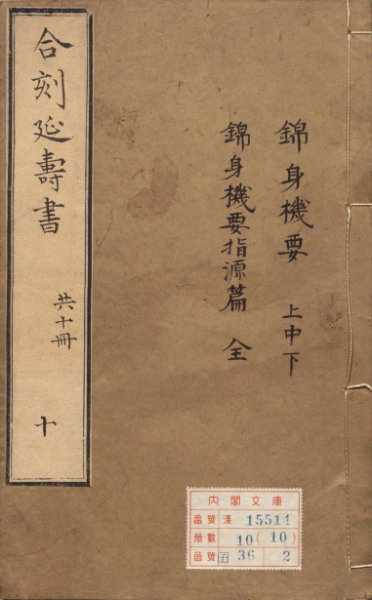 錦身機要 上中下
錦身機要指源篇 全
合刻延壽書 共十冊 十
內閣文庫
番號 漢 15514
冊數 10(10)
函號 子36 2